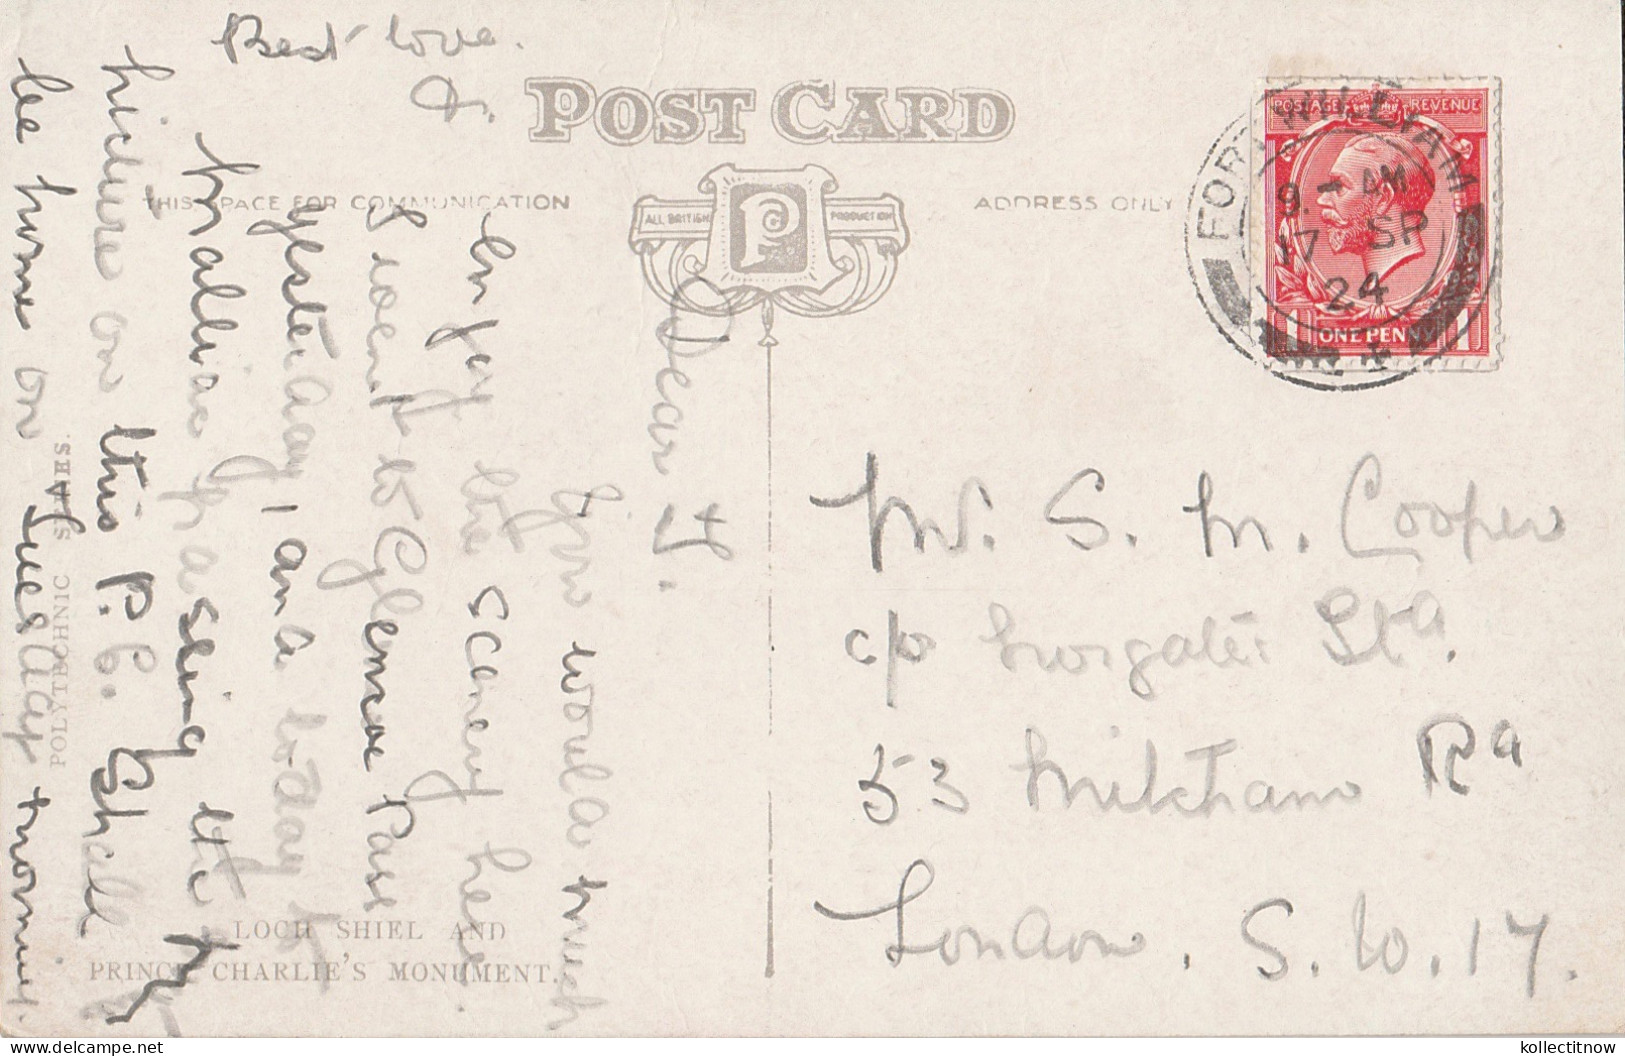 POST CARD
THIS SPACE FOR COMMUNICATION
ALL BRITISH PRODUCTION
P
ADDRESS ONLY
POSTAGE REVENUE
ONE PENNY
1 1
FORT WILLIAM
9. - AM
17 SP
24
Dear J.
You would much
enjoy the scenery here
I went to Glencoe Pass
yesterday, am today to
Mallaig passing the
picture on this P.C. Shall
be home on Tuesday morning.
Best love.
J.
Mr. S. M. Cooper
c/o
53 Mitcham Rd
London. S.W.17.
LOCH SHIEL AND
PRINCE CHARLIE'S MONUMENT.
POLYTECHNIC SERIES.
kollectitnow